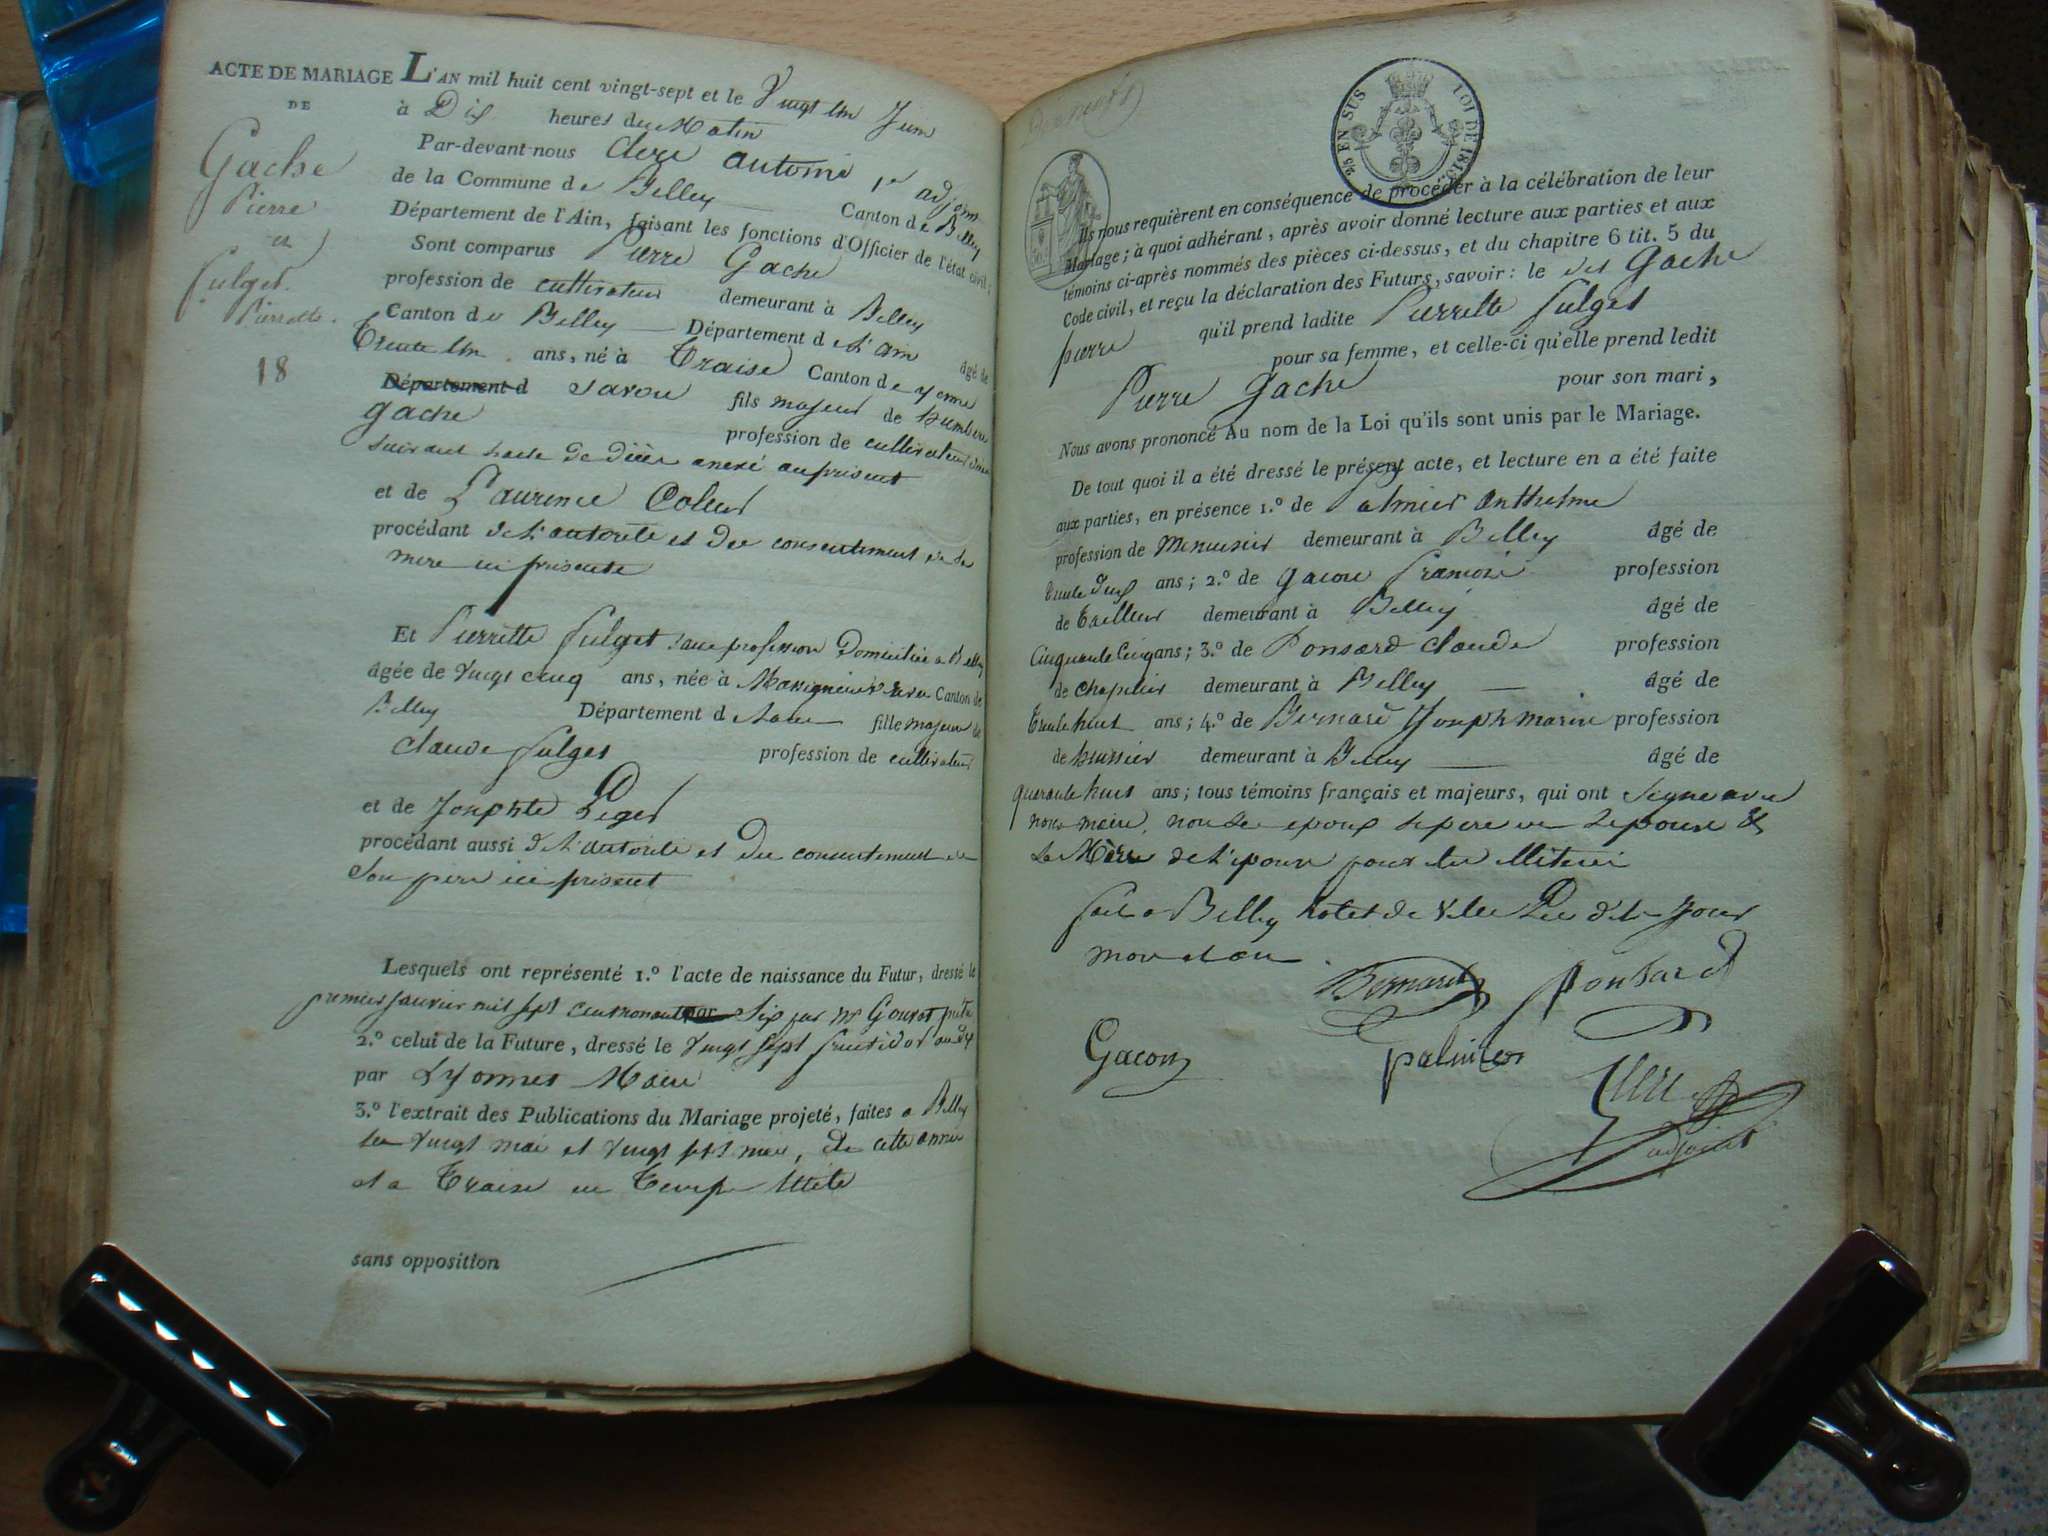 ACTE DE MARIAGE
DE
Gache
Pierre
et
Fulget
Pierrette.
18
L'AN mil huit cent vingt-sept et le Vingt un Juin
à Dix heures du Matin
Par-devant-nous Clerc antoine 1er adjoint
de la Commune de Belley Canton de Belley
Département de l'Ain, faisant les fonctions d'Officier de l'état civil.
Sont comparus Pierre Gache
profession de cultivateur demeurant à Belley
Canton de Belley Département de l'ain âgé de
Trente un ans, né à Traise Canton de yenne
Département d savoie fils majeur de humbert
gache profession de cultivateur
suivant acte de décès anexé au présent
et de Laurence
procédant de l'autorité et du consentement de sa
mere ici présente
Et Pierrette Fulget sans profession Domiciliée a Belley
âgée de vingt cinq ans, née à Canton de
Belley Département d fille majeure de
claude fulget profession de cultivateur
et de Josephte Leger
procédant aussi de l'autorité et du consentement de
son pere ici présent
Lesquels ont représenté 1.º l'acte de naissance du Futur, dressé le
premier janvier mil sept cent nonante par six par mr prêtre
2.º celui de la Future, dressé le vingt sept fructidor an
par Lyonnet Maire
3.º l'extrait des Publications du Mariage projeté, faites a Belley
les vingt mai et vingt sept mai, de cette année
et a Traise en temps utile
sans opposition
2/5 EN SUS
LOI DE 1816
Ils nous requièrent en conséquence de procéder à la célébration de leur
Mariage; à quoi adhérant, après avoir donné lecture aux parties et aux
témoins ci-après nommés des pièces ci-dessus, et du chapitre 6 tit. 5 du
Code civil, et reçu la déclaration des Futurs, savoir: le dit Gache
pierre qu'il prend ladite Pierrette fulget
pour sa femme, et celle-ci qu'elle prend ledit
Pierre Gache pour son mari,
Nous avons prononcé Au nom de la Loi qu'ils sont unis par le Mariage.
De tout quoi il a été dressé le présent acte, et lecture en a été faite
aux parties, en présence 1.º de anthelme
profession de Menuisier demeurant à Belley âgé de
ans; 2.º de gacon françois profession
de tailleur demeurant à Belley âgé de
Cinquante Cinq ans; 3.º de Ponsard claude profession
de chapelier demeurant à Belley âgé de
trente huit ans; 4.º de Bernard Joseph marie profession
de huissier demeurant à Belley âgé de
quarante huit ans; tous témoins français et majeurs, qui ont signe avec
nous maire, non les epoux le pere de l'epouse &
la Mère de l'epoux pour être illiterés
fait a Belley hotel de ville Les dits Jour
mois et an
Bernard Ponsard
Gacon palmier
Clerc
adjoint